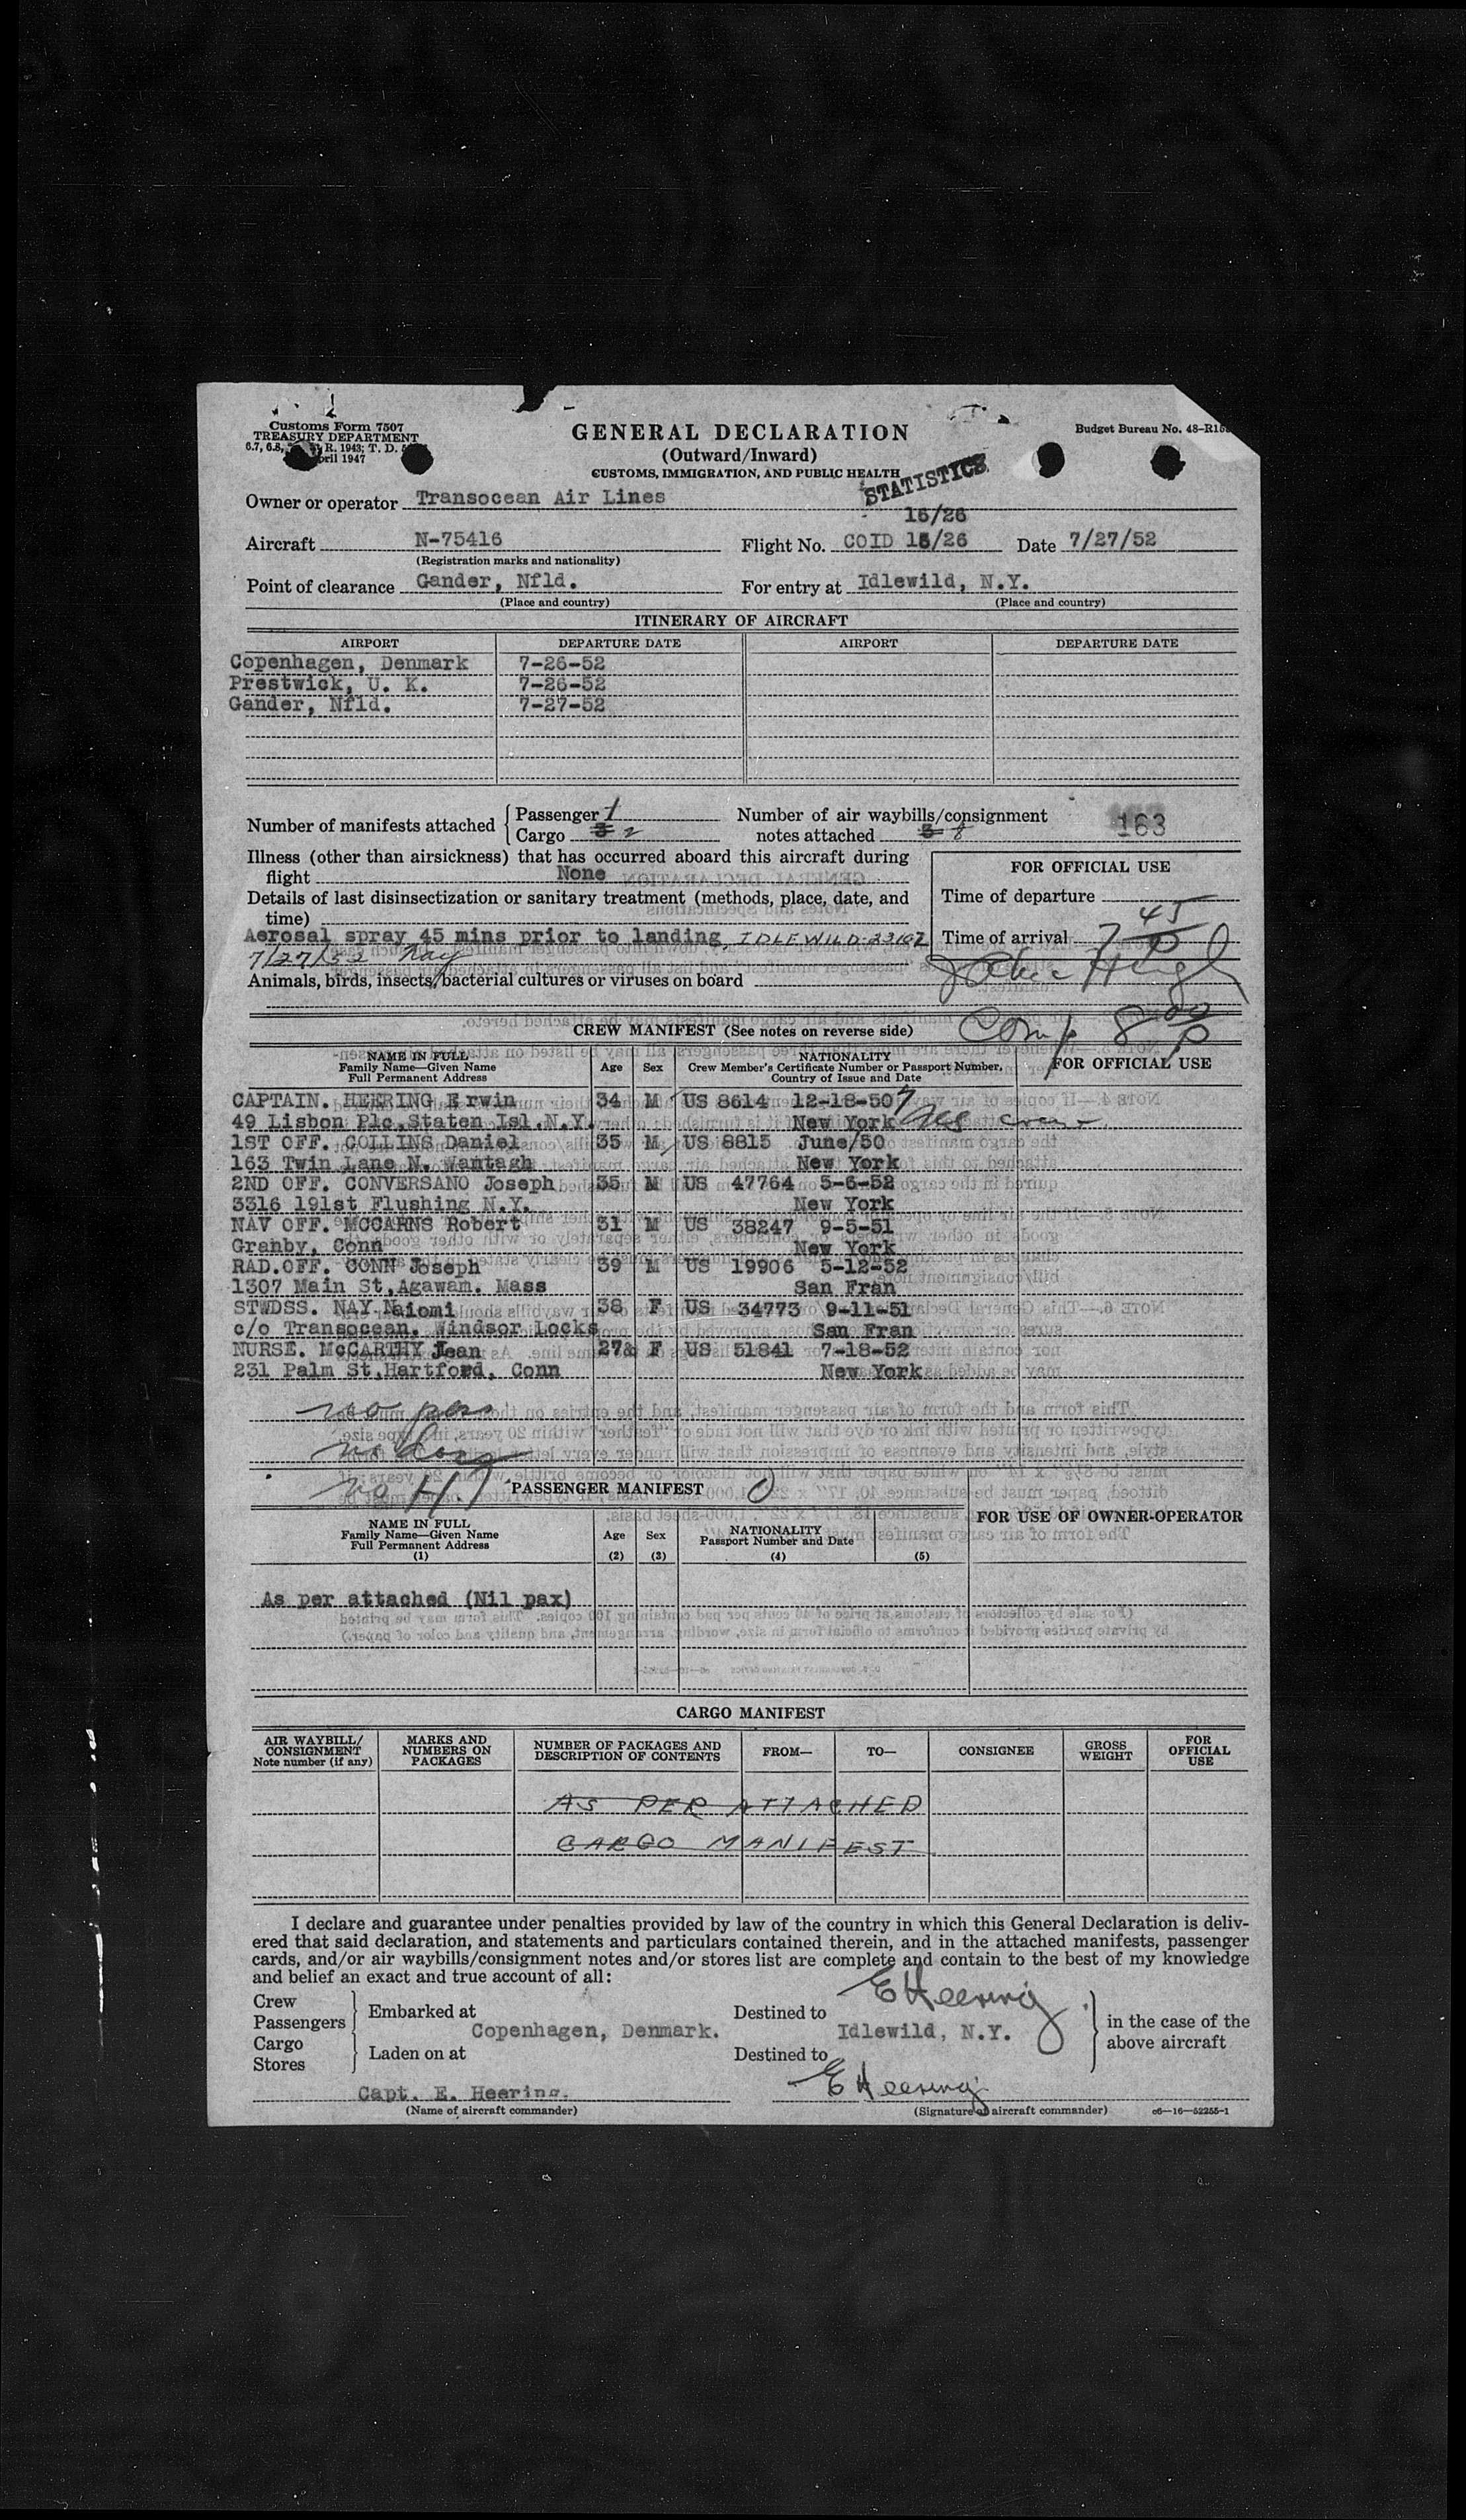 Customs Form 7507
TREASURY DEPARTMENT
6.7, 6.8, R. 1943; T. D.
April 1947
GENERAL DECLARATION
(Outward/Inward)
CUSTOMS, IMMIGRATION, AND PUBLIC HEALTH
Budget Bureau No. 48-R15
STATISTICS
Owner or operator Transocean Air Lines
16/26
Aircraft N-75416 Flight No. COID 15/26 Date 7/27/52
(Registration marks and nationality)
Point of clearance Gander, Nfld. For entry at Idlewild, N.Y.
(Place and country) (Place and country)
ITINERARY OF AIRCRAFT
AIRPORT DEPARTURE DATE AIRPORT DEPARTURE DATE
Copenhagen, Denmark 7-26-52
Prestwick, U. K. 7-26-52
Gander, Nfld. 7-27-52
Number of manifests attached { Passenger 1 Number of air waybills/consignment 163
Cargo 3 2 notes attached 5 8
Illness (other than airsickness) that has occurred aboard this aircraft during
flight None
FOR OFFICIAL USE
Details of last disinsectization or sanitary treatment (methods, place, date, and
time)
Time of departure
Aerosal spray 45 mins prior to landing, IDLEWILD 2316Z
Time of arrival 7 45 P
7/27/52 Nay
Animals, birds, insects, bacterial cultures or viruses on board
Comp 8 00 P
CREW MANIFEST (See notes on reverse side)
NAME IN FULL
Family Name—Given Name
Full Permanent Address
Age Sex
NATIONALITY
Crew Member's Certificate Number or Passport Number,
Country of Issue and Date
FOR OFFICIAL USE
CAPTAIN. HEERING Erwin 34 M US 8614 12-18-50
49 Lisbon Plc,Staten Isl.N.Y. New York 7 crew
1ST OFF. COLLINS Daniel 35 M US 8815 June/50
163 Twin Lane N. Wantagh New York
2ND OFF. CONVERSANO Joseph 35 M US 47764 5-6-52
3316 191st Flushing N.Y. New York
NAV OFF. MCCARNS Robert 31 M US 38247 9-5-51
Granby, Conn New York
RAD.OFF. CONN Joseph 39 M US 19906 5-12-52
1307 Main St,Agawam. Mass San Fran
STWDSS. NAY Naiomi 38 F US 34773 9-11-51
c/o Transocean. Windsor Locks San Fran
NURSE. McCARTHY Jean 27 F US 51841 7-18-52
231 Palm St,Hartford, Conn New York
no pax
no
no H7 PASSENGER MANIFEST 0
NAME IN FULL
Family Name—Given Name
Full Permanent Address
(1)
Age
(2)
Sex
(3)
NATIONALITY
Passport Number and Date
(4) (5)
FOR USE OF OWNER-OPERATOR
As per attached (Nil pax)
CARGO MANIFEST
AIR WAYBILL/
CONSIGNMENT
Note number (if any)
MARKS AND
NUMBERS ON
PACKAGES
NUMBER OF PACKAGES AND
DESCRIPTION OF CONTENTS
FROM— TO— CONSIGNEE
GROSS
WEIGHT
FOR
OFFICIAL
USE
AS PER ATTACHED
CARGO MANIFEST
I declare and guarantee under penalties provided by law of the country in which this General Declaration is deliv-
ered that said declaration, and statements and particulars contained therein, and in the attached manifests, passenger
cards, and/or air waybills/consignment notes and/or stores list are complete and contain to the best of my knowledge
and belief an exact and true account of all:
E Heering
Crew
Passengers
Cargo
Stores
Embarked at Destined to
Copenhagen, Denmark. Idlewild, N.Y.
Laden on at Destined to
in the case of the
above aircraft
Capt. E. Heering. E Heering
(Name of aircraft commander) (Signature of aircraft commander) c6—16—52255-1